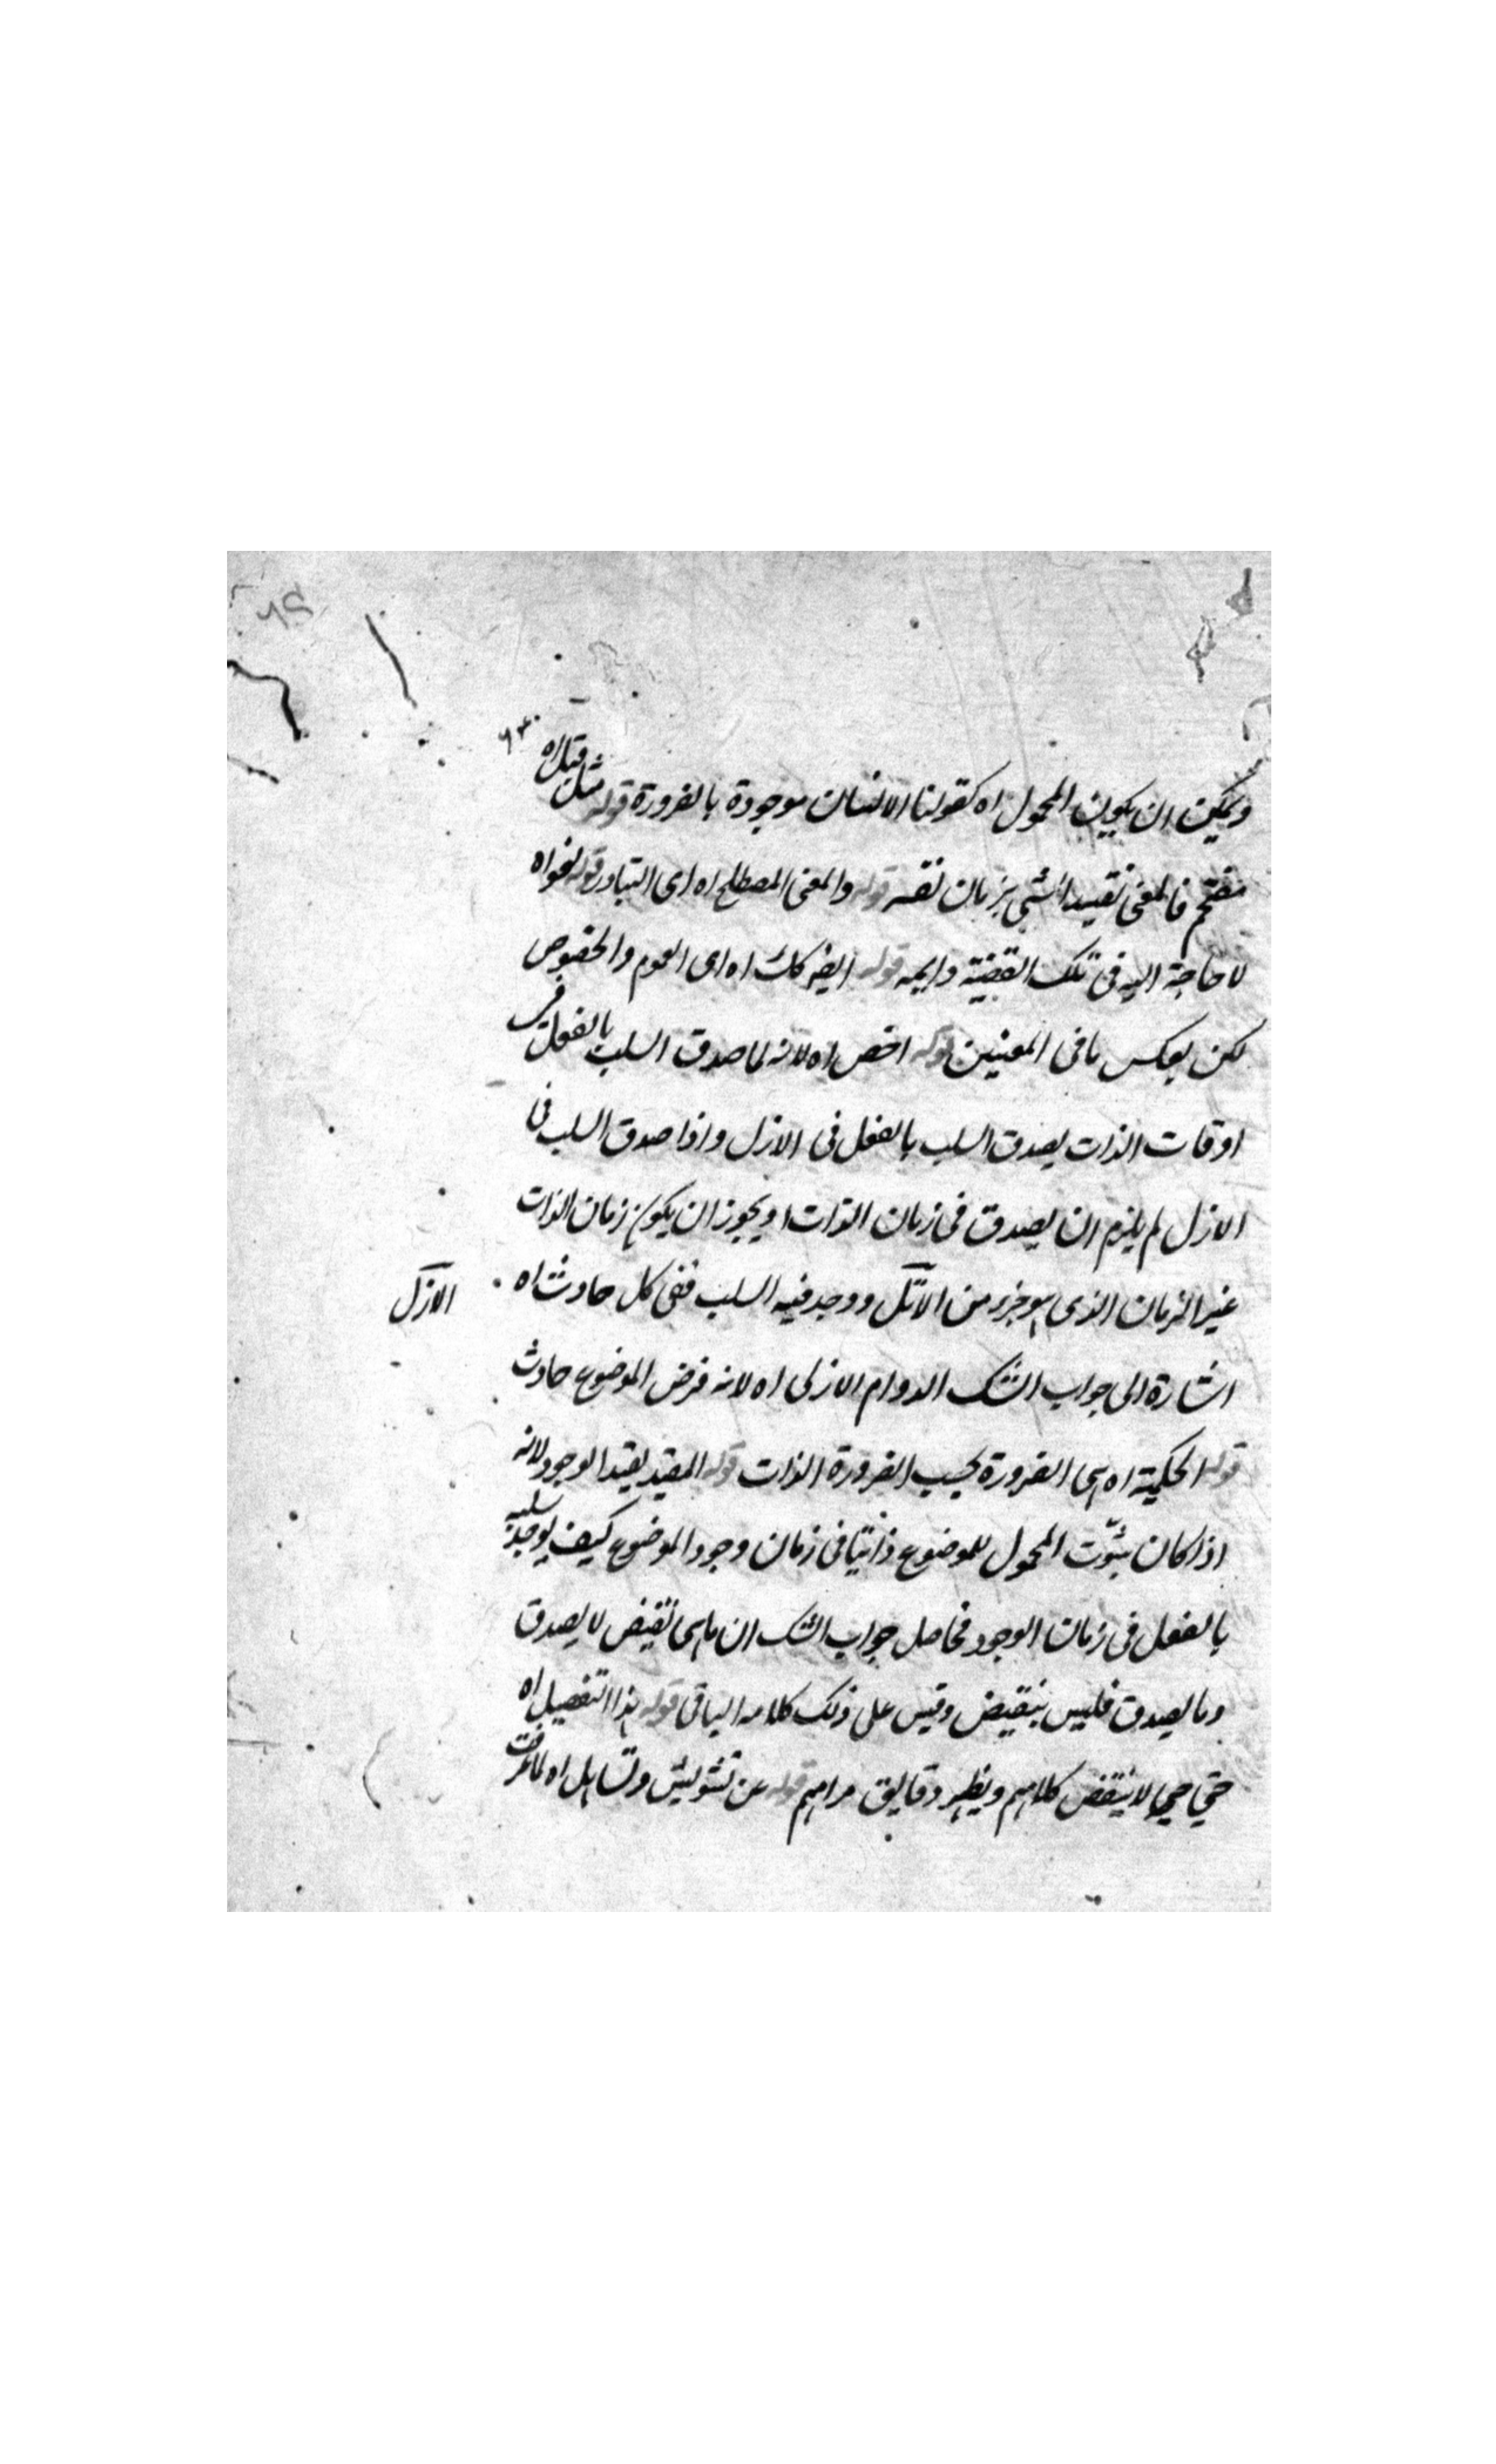 ويمكن ان يكون المحمول اه كقولنا الانسان موجودة بالضرورة قوله مثل قبل اه
مقتحم فالمعنى تقييد الشي بزمان نفسه قوله والمعنى المصطلح اه اى التبادر قوله لغو اه
لا حاجة اليه فى تلك القضية دايمه قوله ايضه كك اه اى العموم والخصوص
لكن بعكس ما فى المعنيين قوله اخص اه لانه لما صدق السلب بالفعل فى
اوقات الذات يصدق السلب بالفعل فى الازل واذا صدق السلب فى
الازل لم يلزم ان يصدق فى زمان الذات اه ويجوز ان يكون زمان الذات
غير الزمان الذى هو جزء من ووجد فيه السلب ففى كل حادث اه
الازل
اشارة الى جواب الشك الدوام الازلى اه لانه فرض الموضوع حادث
قوله الحكمية اه اى الضرورة بحسب الضرورة الذات قوله المقيد بقيد الوجود لانه
اذا كان ثبوت المحمول للموضوع ذاتيا فى زمان وجود الموضوع كيف يوجد سلبه
بالفعل فى زمان الوجود فحاصل جواب الشك ان ما هى نقيض لا يصدق
وما يصدق فليس بنقيض وقيس على ذلك كلامه الباقى قوله هذا التفصيل اه
حتى لا ينقض كلامهم ويظهر دقايق مرامهم قوله عن تشويش وتساهل اه لما عرفت